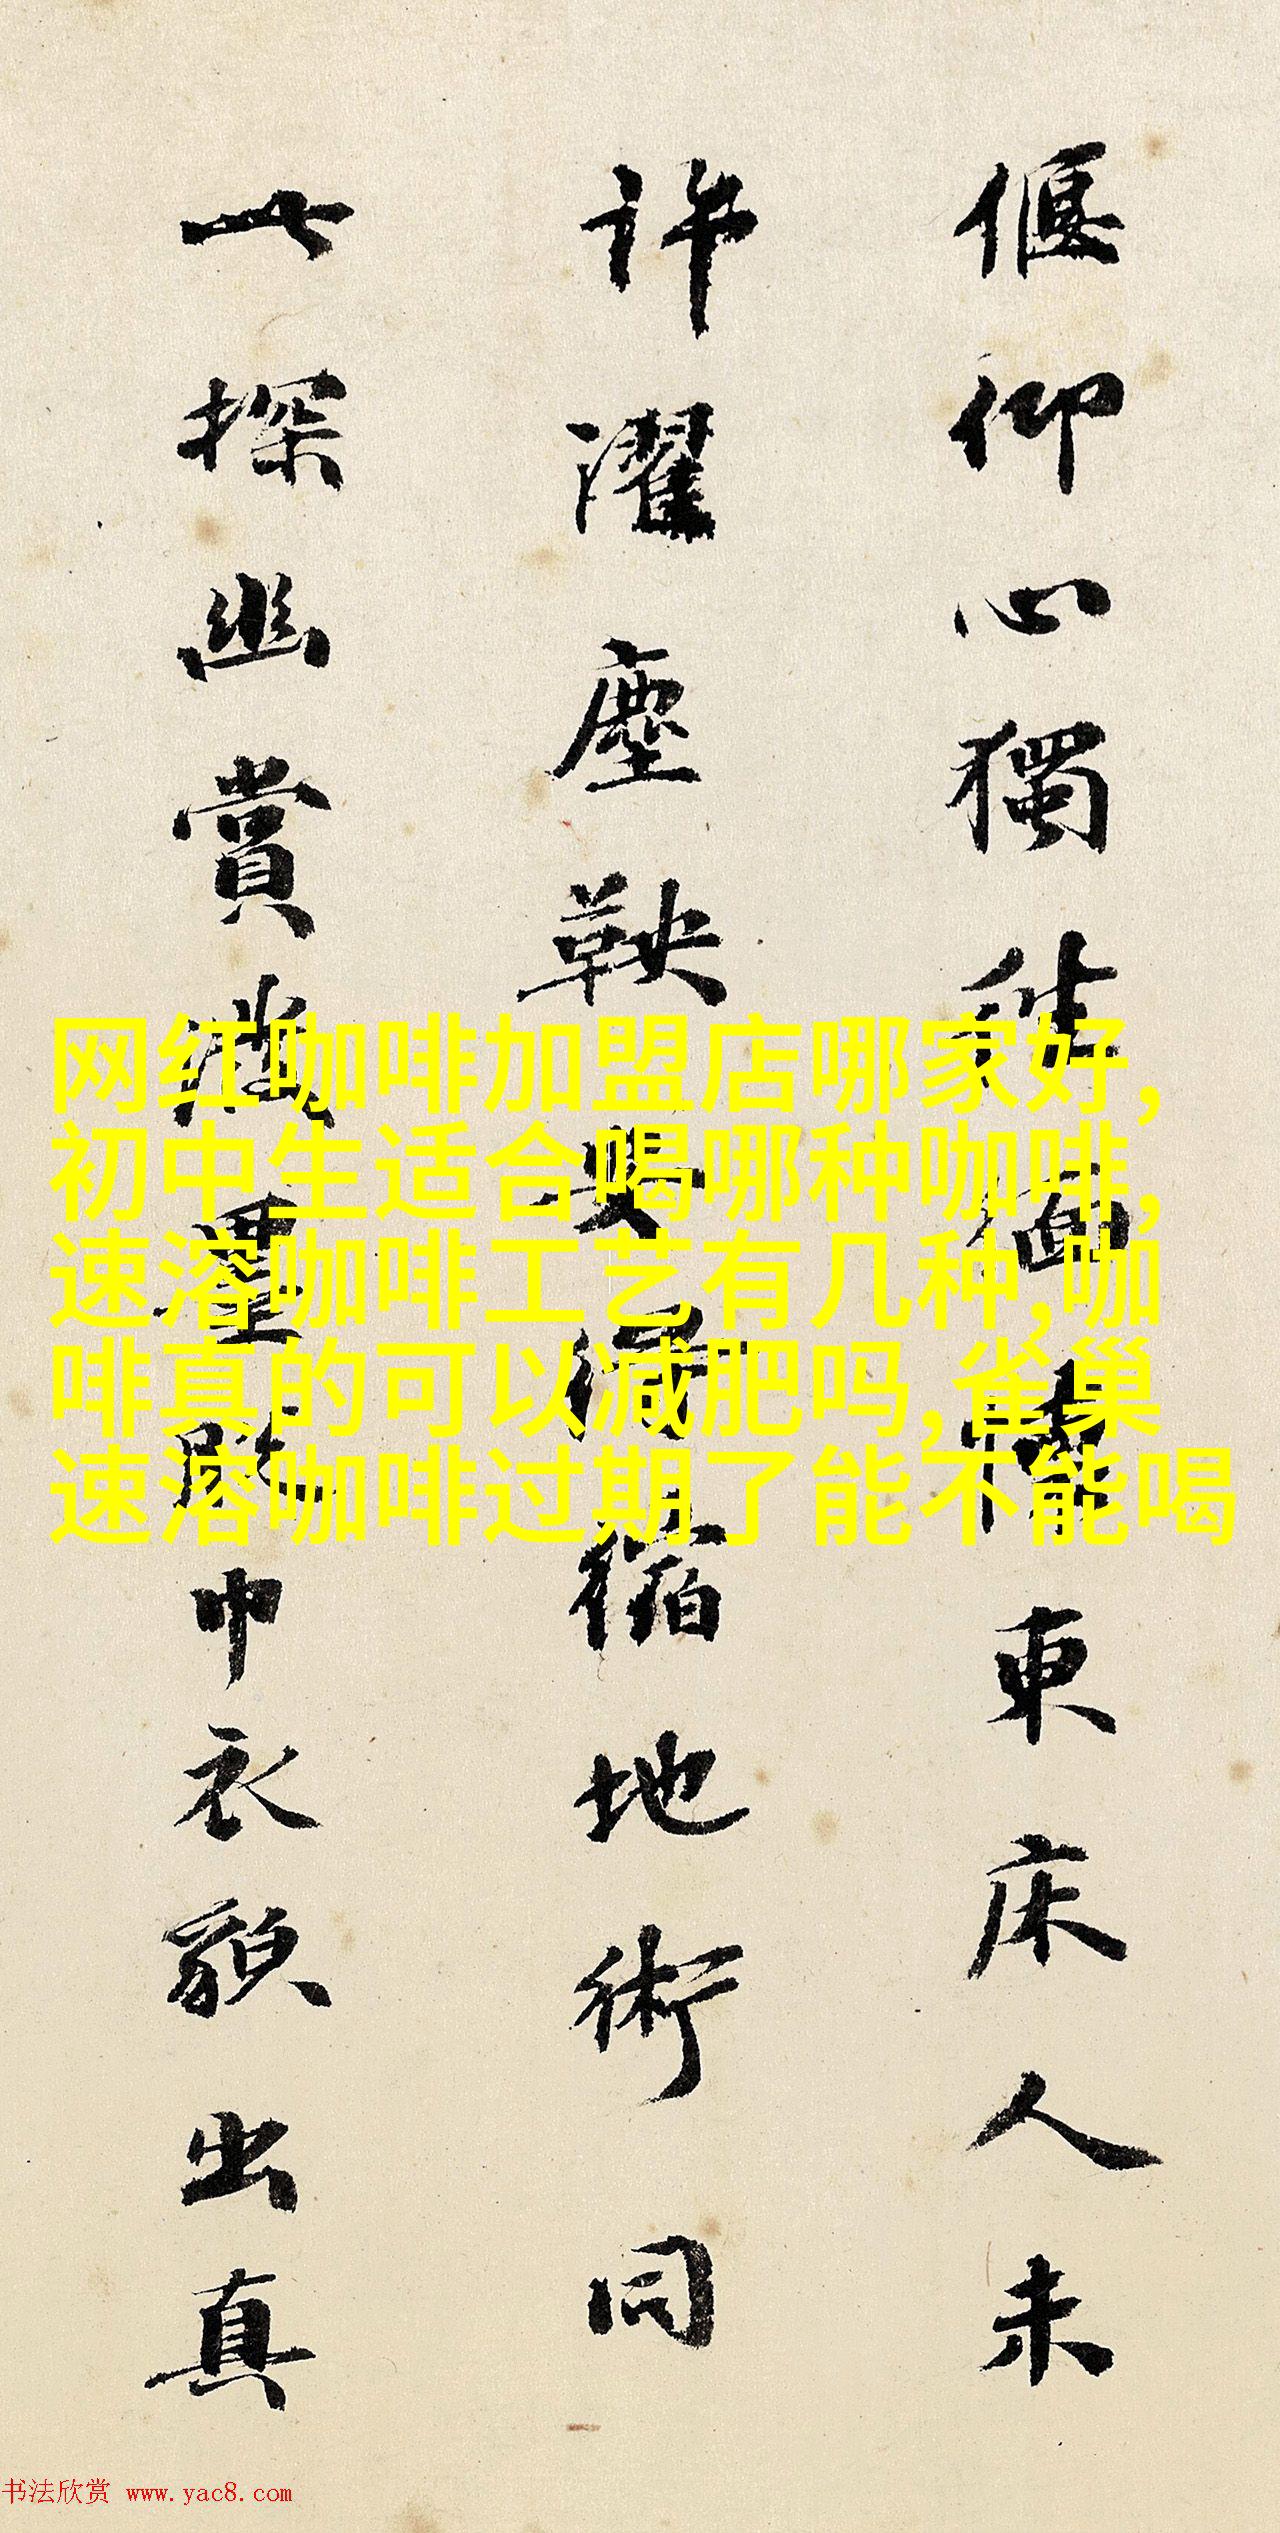 偃仰心獨往緬懷東床人未
許濯塵鞅安得縮地術同
此探幽賞濺墨巾衣貌出真
网红咖啡加盟店哪家好,
初中生适合喝哪种咖啡,
速溶咖啡工艺有几种,咖
啡真的可以减肥吗,雀巢
速溶咖啡过期了能不能喝
书法欣赏 www.yac8.com